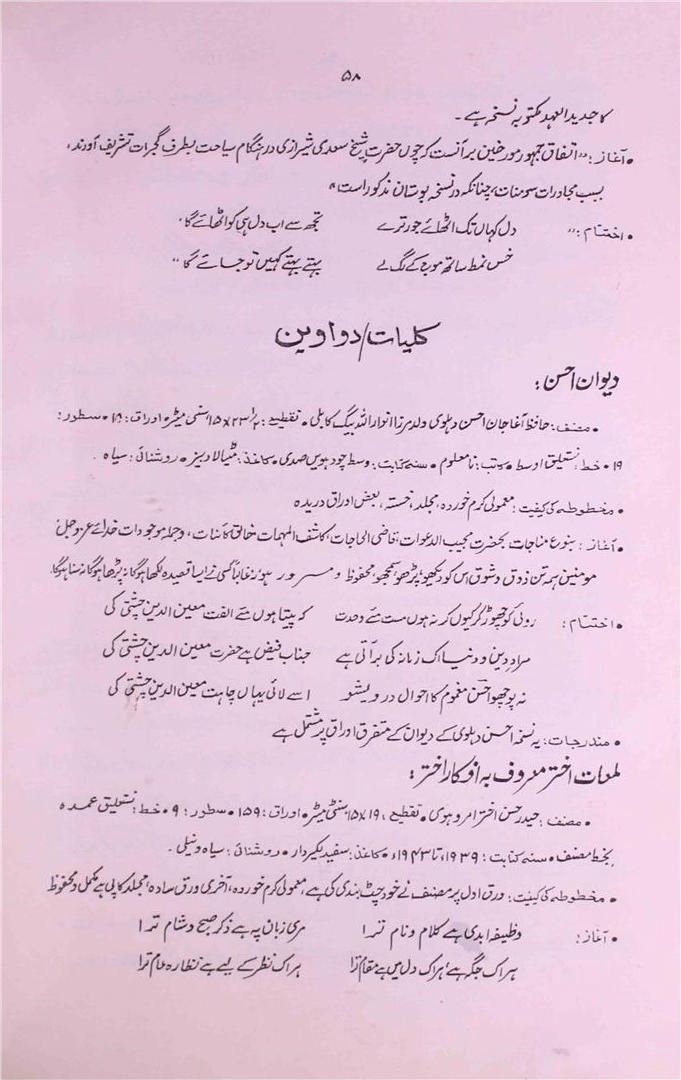 ۵۸
کا جدید العہد مکتوبہ نسخہ ہے۔
• آغاز: "اتفاق جمہور مورخین برآنست کہ چوں حضرت شیخ سعدی شیرازی در ہنگام سیاحت بطرف گجرات تشریف آورند،
بسبب مجادرات سومنات، چنانکہ در نسخہ بوستان مذکور است"
• اختتام: " دل کہاں تک اٹھائے جور ترے تجھ سے اب دل ہی کو اٹھائے گا
خس نمط ساتھ موج کے لگ لے بہتے بہتے کہیں تو جائے گا"
کلیات/دواوین
دیوان احسن:
• مصنف: حافظ آغا جان احسن دہلوی ولد مرزا انوار اللہ بیگ کابلی • تقطیع: ۲۳۱/۲x۱۵ سنٹی میٹر • اوراق: ۱۸ • سطور:
۱۹ • خط: نستعلیق اوسط • کاتب: نامعلوم • سنہ کتابت: وسط چودہویں صدی • کاغذ: مٹیالا دبیز • روشنائی: سیاہ۔
• مخطوطہ کی کیفیت: معمولی کرم خوردہ، مجلد، خستہ، بعض اوراق دریدہ
• آغاز: بنوع مناجات، بحضرت مجیب الدعوات، قاضی الحاجات، کاشف المہمات خالق کائنات، و جملہ موجودات خدائے عز و جل
مومنین ہمہ تن ذوق و شوق اس کو دیکھو، پڑھو، سمجھو، محفوظ و مسرور ہو نہ غالباً کسی نے ایسا قصیدہ لکھا ہو گا نہ پڑھا ہو گا نہ سنا ہو گا۔
• اختتام: روئی کو چھوڑ کر کیوں کر نہ ہوں مست مئے وحدت کہ پیتا ہوں مئے الفت معین الدین چشتی کی
مراد دین و دنیا اک زمانہ کی بر آتی ہے جناب فیض ہے حضرت معین الدین چشتی کی
نہ پوچھو احسن مغموم کا احوال درویشو اسے لائی یہاں چاہت معین الدین چشتی کی
• مندرجات: یہ نسخہ احسن دہلوی کے دیوان کے متفرق اوراق پر مشتمل ہے
لمعات اختر معروف بہ افکار اختر:
• مصنف: حیدر حسن اختر امروہوی • تقطیع: ۱۹x۱۵ سنٹی میٹر • اوراق: ۱۵۹ • سطور: ۹ • خط: نستعلیق عمدہ
بخط مصنف • سنہ کتابت: ۱۹۳۹ء تا ۱۹۴۳ء • کاغذ: سفید لکیردار • روشنائی: سیاہ و نیلی۔
• مخطوطہ کی کیفیت: ورق اول پر مصنف نے خود چٹ بندی کی ہے، معمولی کرم خوردہ، آخری ورق سادہ، مجلد کاپی ہے مکمل و محفوظ
• آغاز: وظیفہ ابدی ہے کلام و نام ترا مری زباں پہ ہے ذکر صبح و شام ترا
ہر اک جگہ ہے، ہر اک دل میں ہے مقام ترا ہر اک نظر کے لیے ہے نظارہ عام ترا